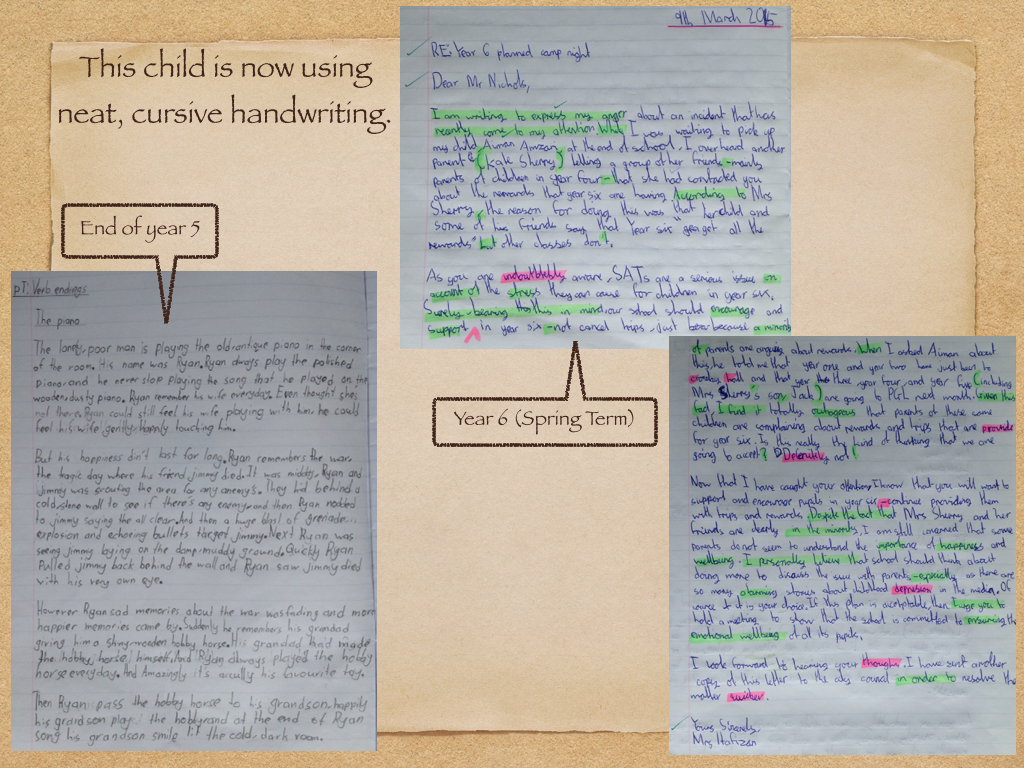 This child is now using
neat, cursive handwriting.
End of year 5
pT: Verb endings
The piano
The lonely, poor man is playing the old, antique piano in the corner
of the room. His name was Ryan. Ryan always play the polished
piano and he never stop playing the song that he played on the
wooden, dusty piano. Ryan remember his wife everyday. Even thought she's
not there, Ryan could still feel his wife playing with him, he could
feel his wife gently, happily touching him.
But his happiness din't last for long. Ryan remembers the war,
the tragic day where his friend jimmy died. It was midday, Ryan and
Jimmy was scouting the area for any anemy's. They hid behind a
cold, stone wall to see if there's any enemy and then Ryan nodded
to jimmy saying the all clear. And then a huge blast of grenade...
explosion and echoing bullets target jimmy. Next Ryan was
seeing jimmy laying on the damp, muddy ground. Quickly Ryan
Pulled jimmy back behind the wall and Ryan saw jimmy died
with his very own eye.
However Ryan sad memories about the war was fading and more
happier memories came by. Suddenly he remembers his grandad
giving him a shiny, wooden hobby horse. His grandad had made
the hobby horse himself. And Ryan always played the hobby
horse everyday. And Amazingly it's acully his favourite toy.
Then Ryan pass the hobby horse to his grandson, happily
his grandson play the hobby and at the end of Ryan
song his grandson smile the cold, dark room.
9th March 2016
RE: Year 6 planned camp night
Dear Mr Nichols,
I am writing to express my anger about an incident that has
recently come to my attention. When I was waiting to pick up
my child, Aiman Amzan, at the end of school, I overheard another
parent (Kate Sherry) telling a group of her friends - mainly
parents of children in year four - that she had contacted you
about the rewards that year six are having. According to Mrs
Sherry, the reason for doing this was that her child and
some of his friends say that Year six "get all the
rewards" but other classes don't.
As you are undoubtebly aware, SATs are a serious issue on
account of the stress they can cause for children in year six.
Surely, bearing this in mind, our school should encourage and
support in year six - not cancel trips - just because a minority
Year 6 (Spring Term)
of parents are angry about rewards. When I asked Aiman about
this, he told me that year one and year two have just been to
and that year three, year four and year five (including
Mrs Sherry's son, Jack) are going to PGL next month. Given this
fact, I find it totally outrageous that parents of these same
children are complaining about rewards and trips that are provide
for year six. Is this really the kind of thinking that we are
going to accept? Definitely not!
Now that I have caught your attention, I know that you will want to
support and encourage pupils in year six - continue providing them
with trips and rewards. Despite the fact that Mrs Sherry and her
friends are clearly in the minority, I am still concerned that some
parents do not seem to understand the importance of happiness and
wellbeing. I personally believe that school should think about
doing more to discuss the issue with parents - especially as there are
so many alarming stories about childhood depression in the media. Of
course it is your choice. If this plan is acceptable, then I urge you to
hold a meeting to show that the school is committed to ensuring the
emotional wellbeing of all its pupils.
I look forward to hearing your thoughs. I have sent another
copy of this letter to the city council in order to resolve the
matter
Yours Sincerely,
Mrs Hafizan